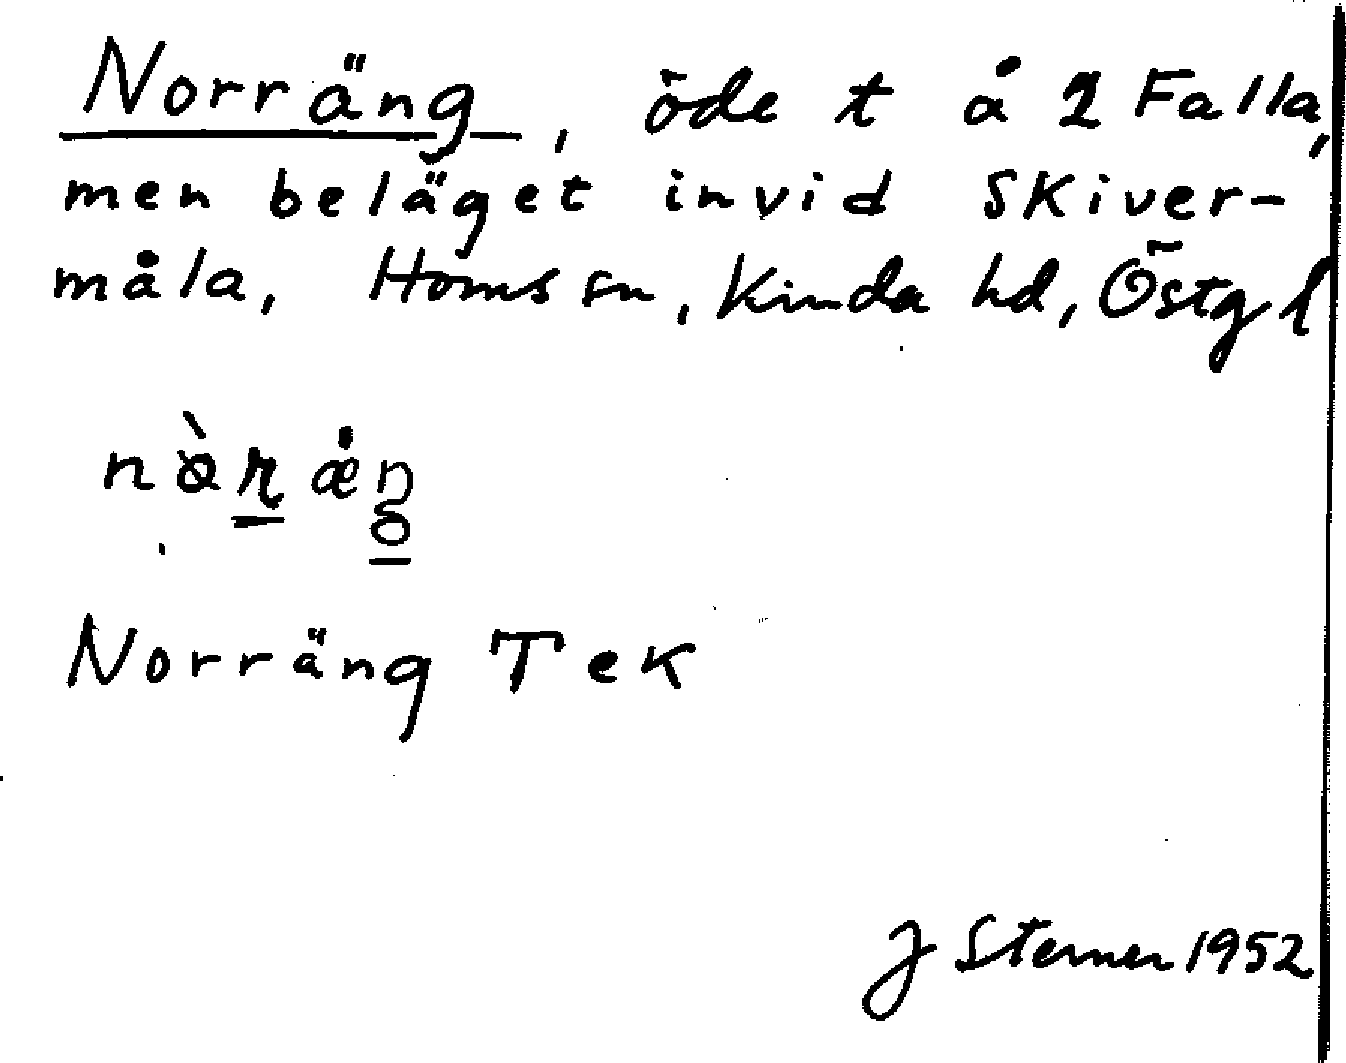 Norräng, öde t å 2 Falla,
men beläget invid Skiver-
måla, Homs sn, Kinda hd, Östgl
Norräng Tek
J Sterner 1952